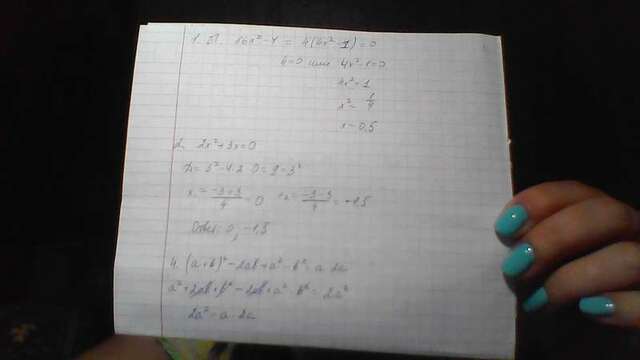 16x² - 4 = 4(4x² - 1) = 0
4x² - 1 = 0
4x² = 1
x² = 1/4
x = 0,5
2. 2x² + 3x = 0
D = 3² - 4·2·0 = 9 = 3²
x₁ = (-3+3)/4 = 0 x₂ = (-3-3)/4 = -1,5
Ответ: 0; -1,5
4. (a+b)² - 2ab + a² - b² = a·2a
a² + 2ab + b² - 2ab + a² - b² = 2a²
2a² = a·2a